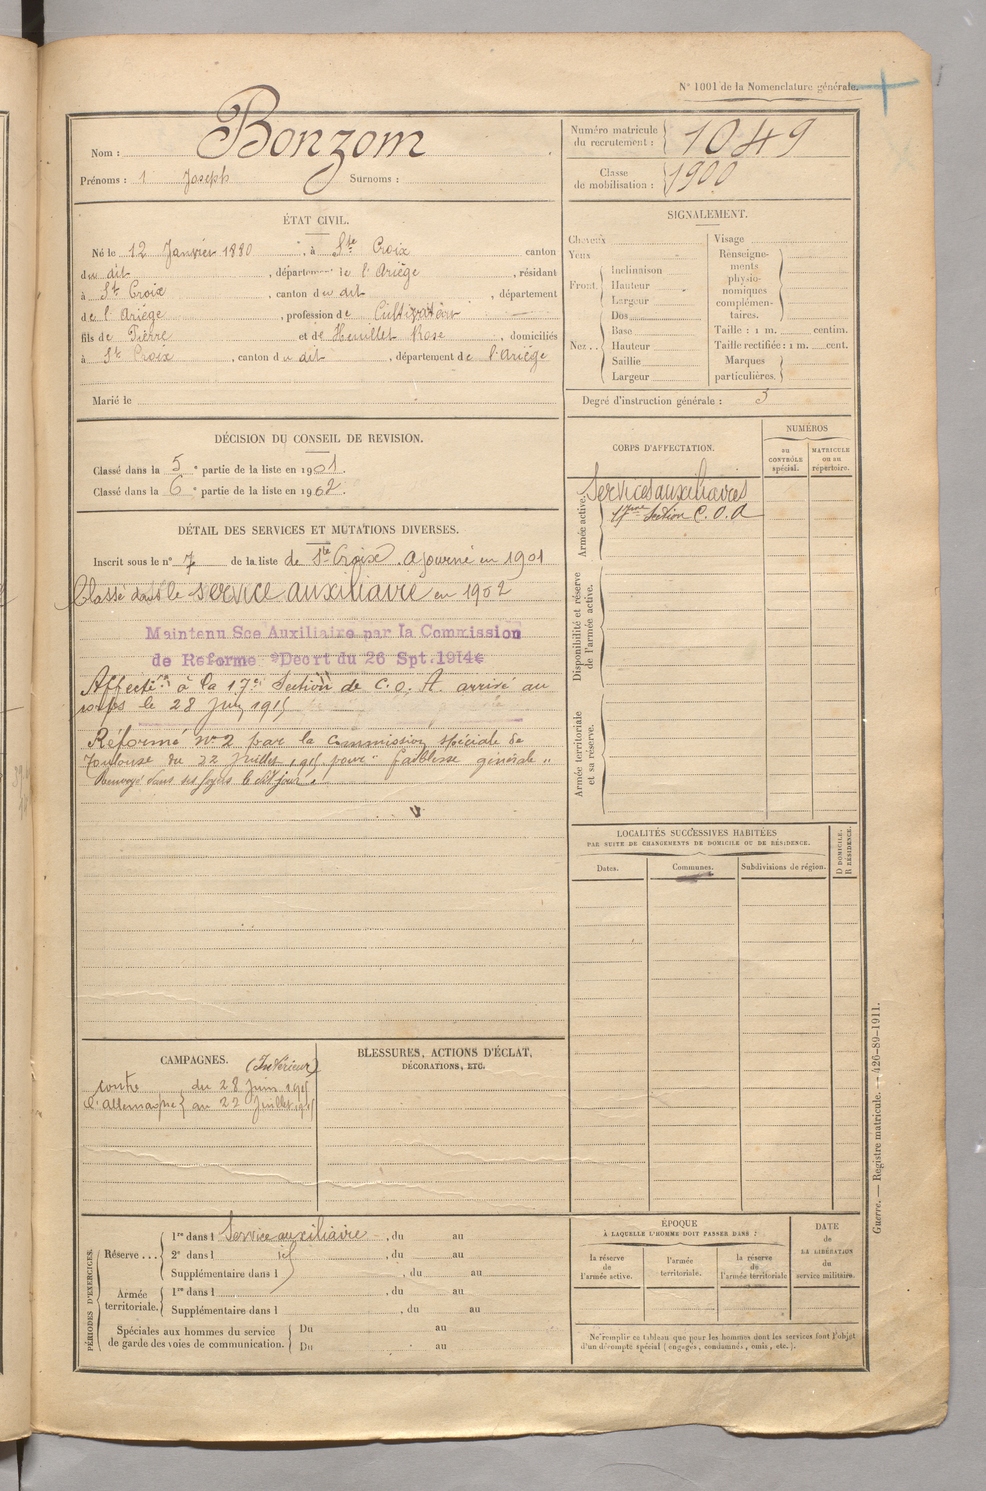 N° 1001 de la Nomenclature générale.
Nom : Bonzom
Prénoms : 1 Joseph Surnoms :
Numéro matricule du recrutement : 1049
Classe de mobilisation : 1900
ÉTAT CIVIL.
Né le 12 Janvier 1880, à Ste Croix canton
du dit, département de l'Ariège, résidant
à St Croix, canton du dit, département
de l'Ariège, profession de Cultivateur
fils de Pierre et de Heuillet Rose, domiciliés
à St Croix, canton du dit, département de l'Ariège
Marié le
SIGNALEMENT.
Cheveux
Yeux
Front. Inclinaison
Hauteur
Largeur
Nez .. Dos
Base
Hauteur
Saillie
Largeur
Visage
Renseignements physionomiques complémentaires.
Taille : 1 m. centim.
Taille rectifiée : 1 m. cent.
Marques particulières.
Degré d'instruction générale : 3
DÉCISION DU CONSEIL DE REVISION.
Classé dans la 5e partie de la liste en 1901.
Classé dans la 6e partie de la liste en 1902.
CORPS D'AFFECTATION.
NUMÉROS
au CONTRÔLE spécial.
MATRICULE ou au répertoire.
Armée active.
Services auxiliaires
17ème Section C.O.A
Disponibilité et réserve de l'armée active.
Armée territoriale et sa réserve.
DÉTAIL DES SERVICES ET MUTATIONS DIVERSES.
Inscrit sous le n° 7 de la liste de Ste Croix. Ajourné en 1901
Classé dans le service auxiliaire en 1902
Maintenu Sce Auxiliaire par la Commission
de Reforme Décrt du 26 Spt. 1914
Affecté à la 17e Section de C.O.A. arrivé au
corps le 28 Juin 1915
Réformé n° 2 par la commission spéciale de
Toulouse du 22 Juillet 1915 pour "faiblesse générale"
Renvoyé dans ses foyers le dit jour.
LOCALITÉS SUCCESSIVES HABITÉES
PAR SUITE DE CHANGEMENTS DE DOMICILE OU DE RÉSIDENCE.
Dates.
Communes.
Subdivisions de région.
D DOMICILE.
R RÉSIDENCE.
CAMPAGNES.
(Intérieur)
contre l'Allemagne
du 28 Juin 1915
au 22 Juillet 1915
BLESSURES, ACTIONS D'ÉCLAT,
DÉCORATIONS, ETC.
PÉRIODES D'EXERCICES.
Réserve ... 1re dans l Service auxiliaire, du au
2e dans l id, du au
Supplémentaire dans l, du au
Armée territoriale. 1re dans l, du au
Supplémentaire dans l, du au
Spéciales aux hommes du service de garde des voies de communication. Du au
Du au
ÉPOQUE
À LAQUELLE L'HOMME DOIT PASSER DANS :
la réserve de l'armée active.
l'armée territoriale.
la réserve de l'armée territoriale
DATE
de
LA LIBÉRATION
du
service militaire.
Ne remplir ce tableau que pour les hommes dont les services font l'objet
d'un décompte spécial (engagés, condamnés, omis, etc.).
Guerre. — Registre matricule. — 426-89-1911.